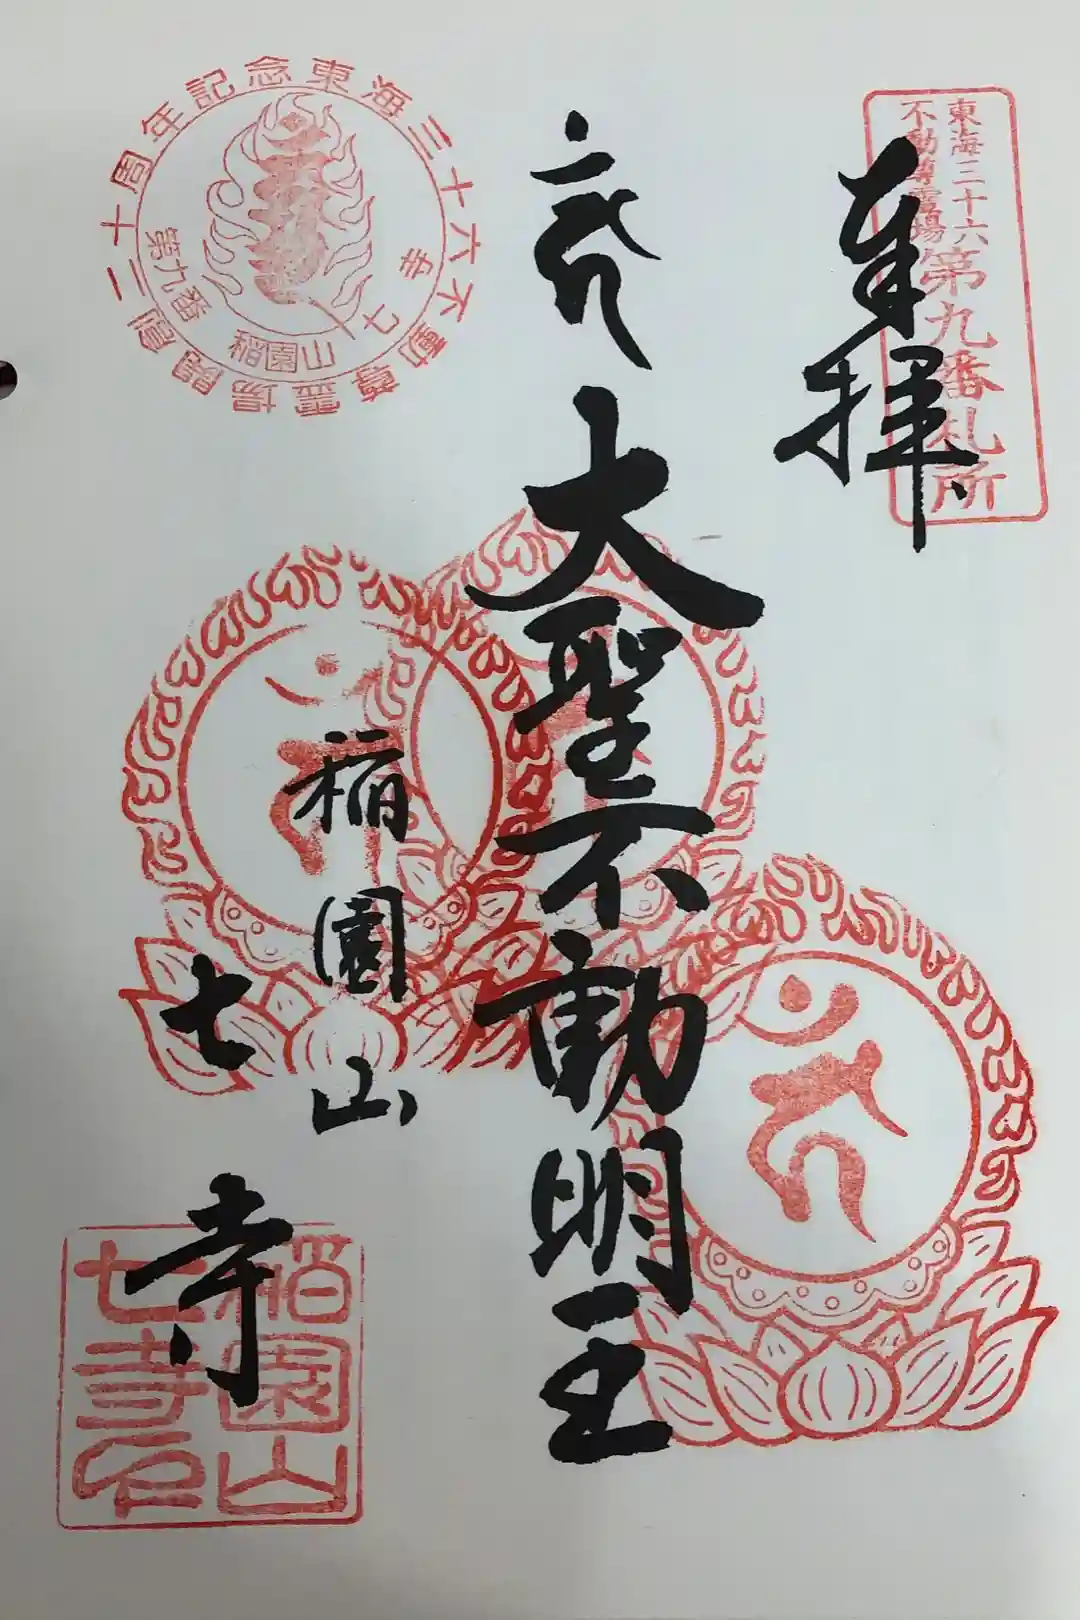 東海三十六
不動尊霊場
第九番札所
奉拝
大聖不動明王
稲園山
七寺
二十周年記念東海三十六不動尊霊場開創
第九番
稲園山
七寺
稲園山
七寺印